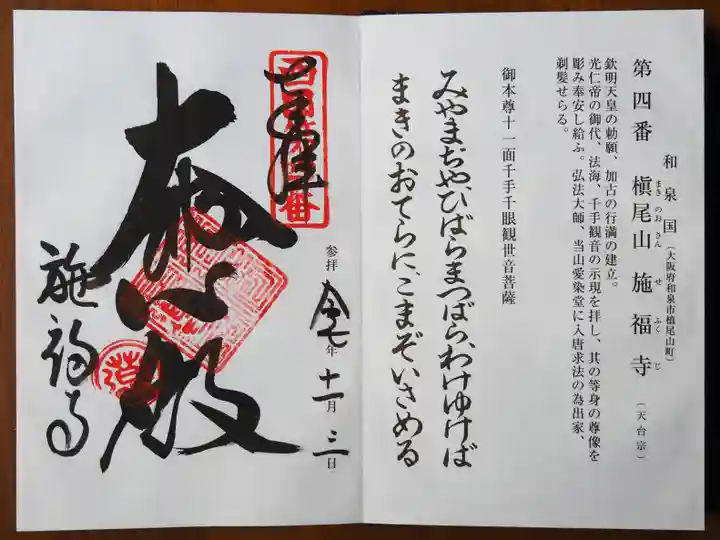 和泉国（大阪府和泉市槙尾山町）
第四番 槇尾山 施福寺（天台宗）
まきのおさん せふくじ
欽明天皇の勅願、加古の行満の建立。
光仁帝の御代、法海、千手観音の示現を拝し、其の等身の尊像を
彫み奉安し給ふ。弘法大師、当山愛染堂に入唐求法の為出家、
剃髪せらる。
御本尊十一面千手千眼観世音菩薩
みやまぢやひばらまつばら、わけゆけば
まきのおてらに、こまぞいさめる
参拝
令七年十一月三日
奉拝
大悲殿
施福寺